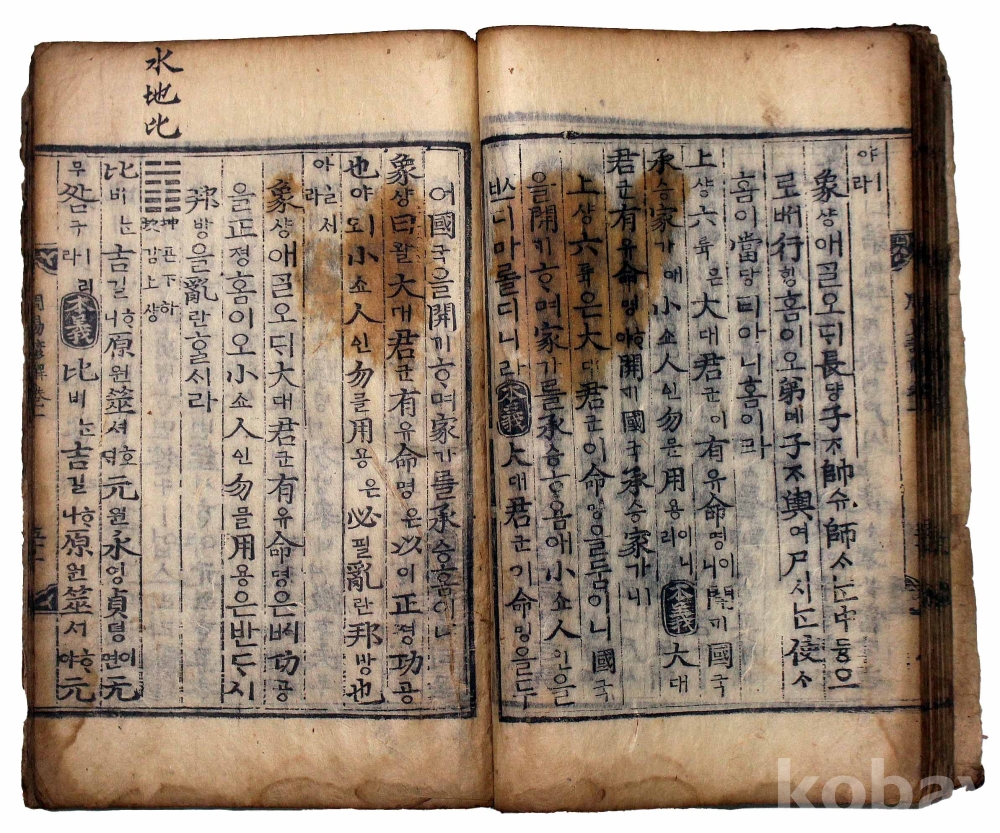 야ㅣ라
象샹애ᄀᆞᆯ오ᄃᆡ長댱子ᄌᆞ帥슈師ᄉᆞᄂᆞᆫ中듕으
로ᄡᅥ行ᄒᆡᆼ홈이오弟뎨子ᄌᆞ輿여尸시ᄂᆞᆫ使ᄉᆞ
홈이當당티아니홈이라
上샹六륙은大대君군이有유命명이니開기國국
承승家가애小쇼人인勿믈用용이니라本義大대
君군有유命명ᄒᆞ야開ᄀᆡ國국承승家가ㅣ니
上샹六륙은大대君군이命명을둠이니國국
을開기ᄒᆞ며家가를承승홈애小쇼人인을
ᄡᅳ디마롤디니라本義大대君군기命명을두
여國국을開기ᄒᆞ며家가를承승홈이니
象샹曰왈大대君군有유命명은以이正졍功공
也야ㅣ오小쇼人인勿믈用용은必필亂란邦방也
야ㅣ라
象샹애ᄀᆞᆯ오ᄃᆡ大대君군有유命명은ᄡᅥ功공
을正졍홈이오小쇼人인勿믈用용은반ᄃᆞ시
邦방을亂란ᄒᆞᆯᄉᆡ라
坤곤下하
坎감上샹
水地比
比비ᄂᆞᆫ吉길ᄒᆞ니原원筮셔호ᄃᆡ元원永영貞뎡이면元
무咎구ㅣ리라本義比비ᄂᆞᆫ吉길ᄒᆞ나原원筮서ᄒᆞ야元